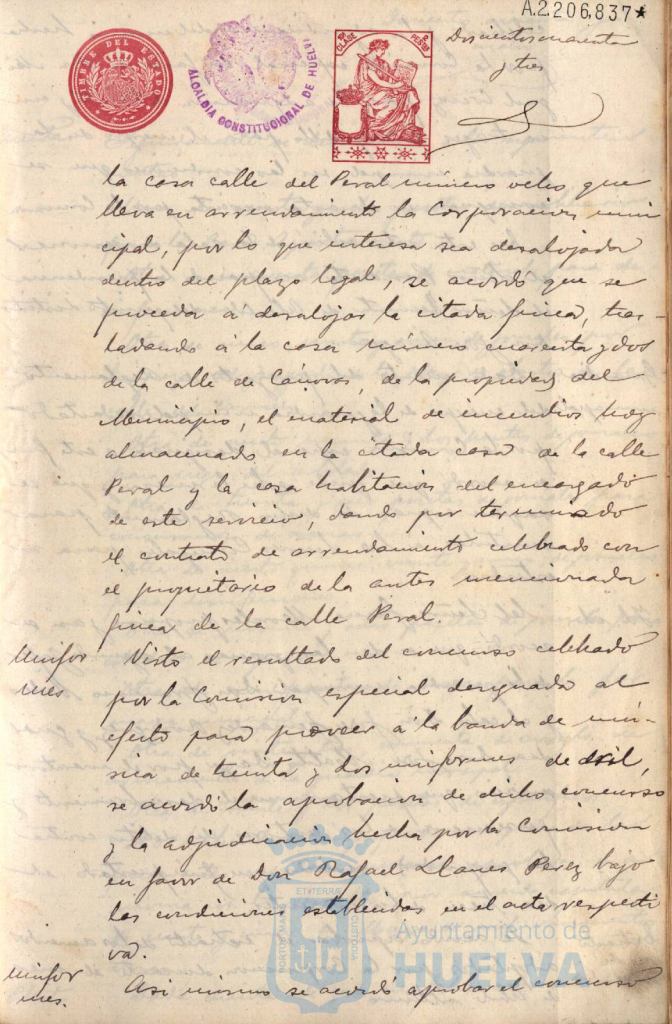 A.2.206,837★
TIMBRE DEL ESTADO
ALCALDIA CONSTITUCIONAL DE HUELVA
CLASE PESETAS
Doscientos cuarenta
y tres
la casa calle del Peral número ocho, que
lleva en arrendamiento la Corporacion muni
cipal, por lo que interesa sea desalojada
dentro del plazo legal, se acordó que se
proceda á desalojar la citada finca, tras-
ladando á la casa número cuarenta y dos
de la calle de Cánovas, de la propiedad del
Municipio, el material de incendios hoy
almacenado en la citada casa de la calle
Peral y la casa habitacion del encargado
de este servicio, dando por terminado
el contrato de arrendamiento celebrado con
el propietario de la antes mencionada
finca de la calle Peral.
Unifor
mes
Visto el resultado del concurso celebrado
por la Comision especial designada al
efecto para proveer á la banda de mú-
sica de treinta y dos uniformes de dril,
se acordó la aprobacion de dicho concurso
y la adjudicacion hecha por la Comision
en favor de Don Rafael Llanes Perez bajo
las condiciones establecidas en el acta respecti
va.
Unifor
mes.
Asi mismo se acordó aprobar el concurso
PORTUS MARIS ET TERRAE CUSTODIA
Ayuntamiento de
HUELVA